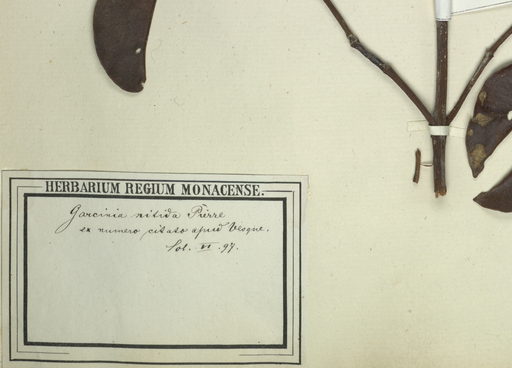 HERBARIUM REGIUM MONACENSE.
Garcinia nitida Pierre
ex numero citato apud Vesque.
Sol. VI. 97.